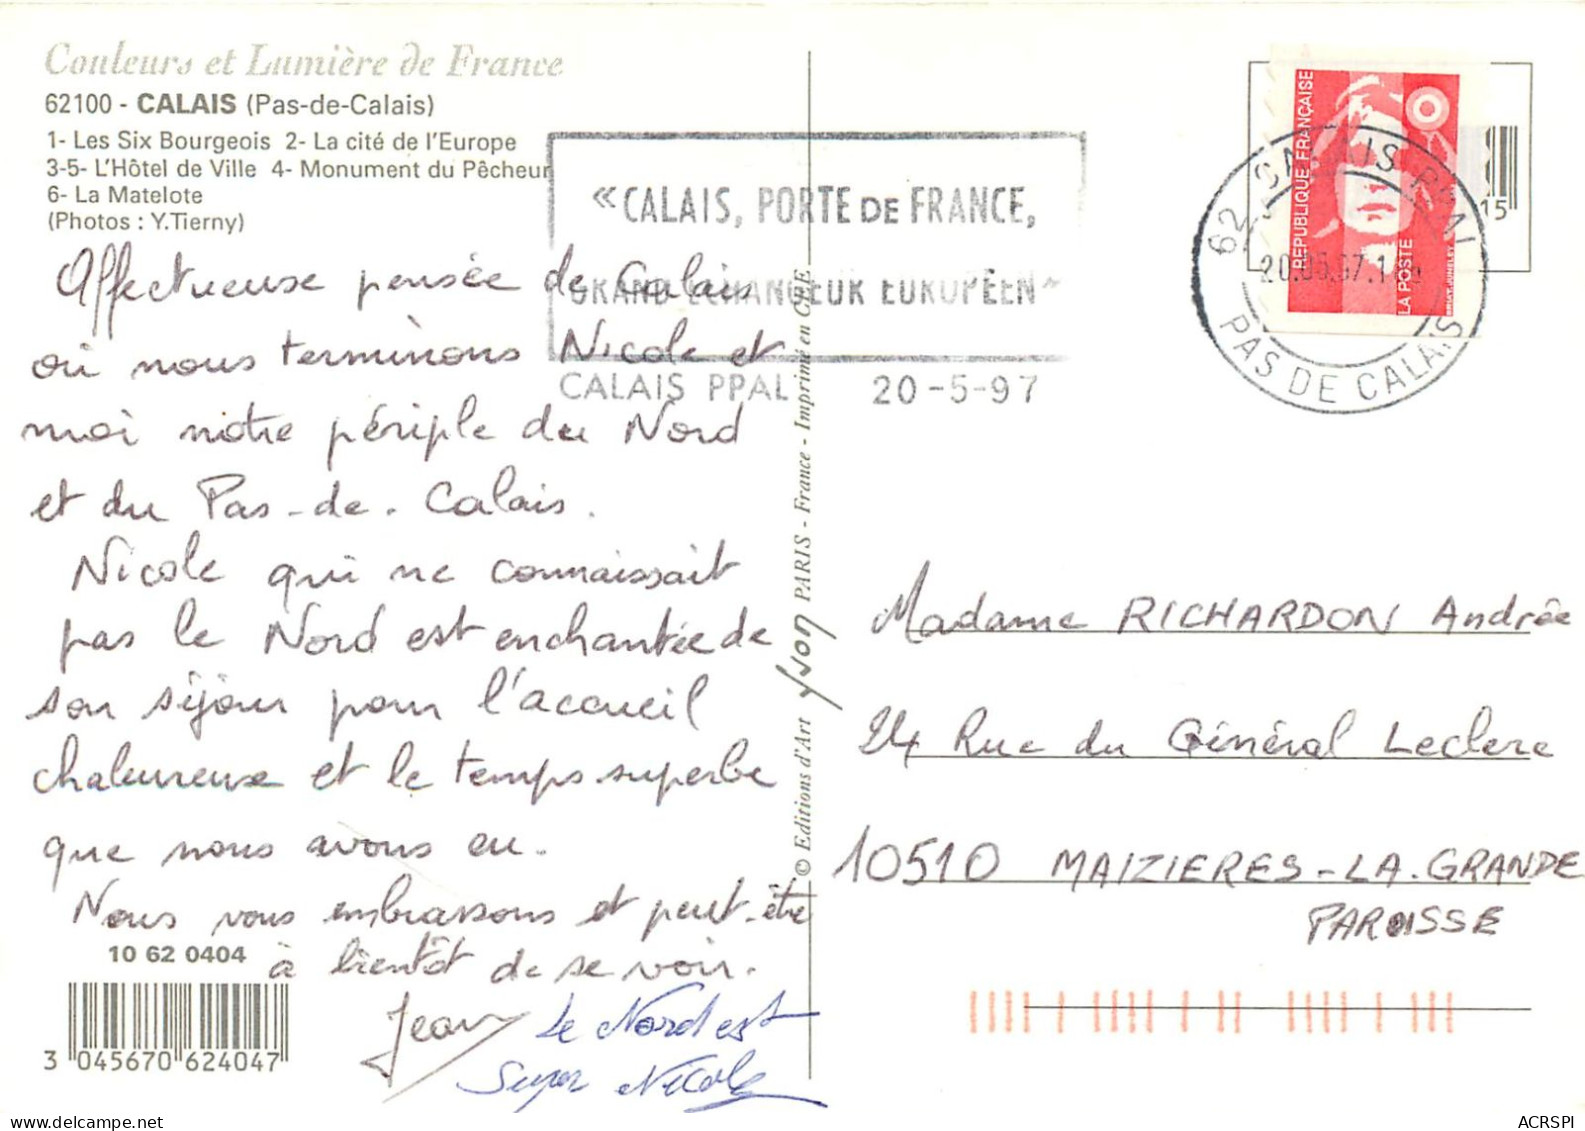 Couleurs et Lumière de France
62100 - CALAIS (Pas-de-Calais)
1- Les Six Bourgeois 2- La cité de l'Europe
3-5- L'Hôtel de Ville 4- Monument du Pêcheur
6- La Matelote
(Photos : Y.Tierny)
« CALAIS, PORTE DE FRANCE,
GRAND ECHANGEUR EUROPÉEN »
CALAIS PPAL 20-5-97
RÉPUBLIQUE FRANÇAISE
LA POSTE
15
62 CALAIS PPAL
PAS DE CALAIS
Affectueuse pensée de Calais
où nous terminons Nicole et
moi notre périple du Nord
et du Pas-de-Calais.
Nicole qui ne connaissait
pas le Nord est enchantée de
son séjour pour l'accueil
chaleureuse et le temps superbe
que nous avons eu.
Nous vous embrassons et peut-être
à bientôt de se voir.
Jean
Le Nord est
Super Nicole
10 62 0404
3 045670 624047
© Editions d'Art yvon PARIS - France - Imprimé en CEE
Madame RICHARDON Andrée
24 Rue du Général Leclerc
10510 MAIZIERES-LA-GRANDE
PAROISSE
delcampe.net
ACRSPI